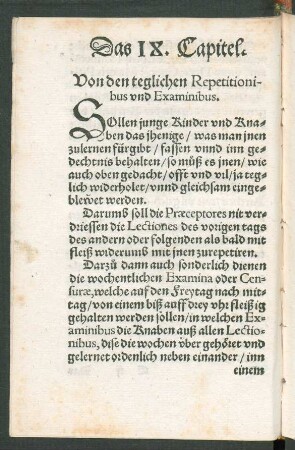 Das IX. Capitel.
Von den teglichen Repetitioni-
bus vnd Examinibus.
SOllen junge Kinder vnd Kna-
ben das jhenige / was man jnen
zulernen fürgibt / fassen vnnd inn ge-
dechtnis behalten / so müß es jnen / wie
auch oben gedacht / offt vnd vil / ja teg-
lich widerholet / vnnd gleichsam einge-
blewet werden.
Darumb soll die Præceptores nit ver-
driessen die Lectiones des vorigen tags
des andern oder folgenden als bald mit
fleiß widerumb mit jnen zurepetiren.
Darzů dann auch sonderlich dienen
die wochentlichen Examina oder Cen-
suræ, welche auf den Freytag nach mit-
tag / von einem biß auff drey vhr fleißig
gehalten werden sollen / in welchen Ex-
aminibus die Knaben auß allen Lectio-
nibus, dise die wochen vber gehöret vnd
gelernet ordenlich neben einander / inn
einem